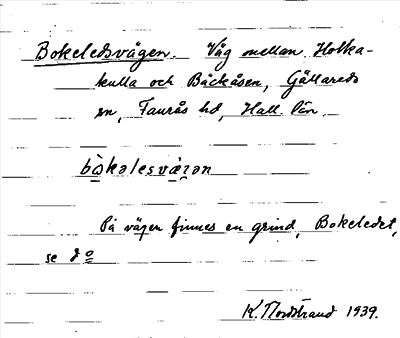 Bokeledsvägen. Väg mellan Holka-
kulla och Bäckåsen, Gällareds
sn, Faurås hd, Hall. län.
bòkəlesvä̀gən
På vägen finnes en grind, Bokeledet,
se d o
K. Nordstrand 1939.